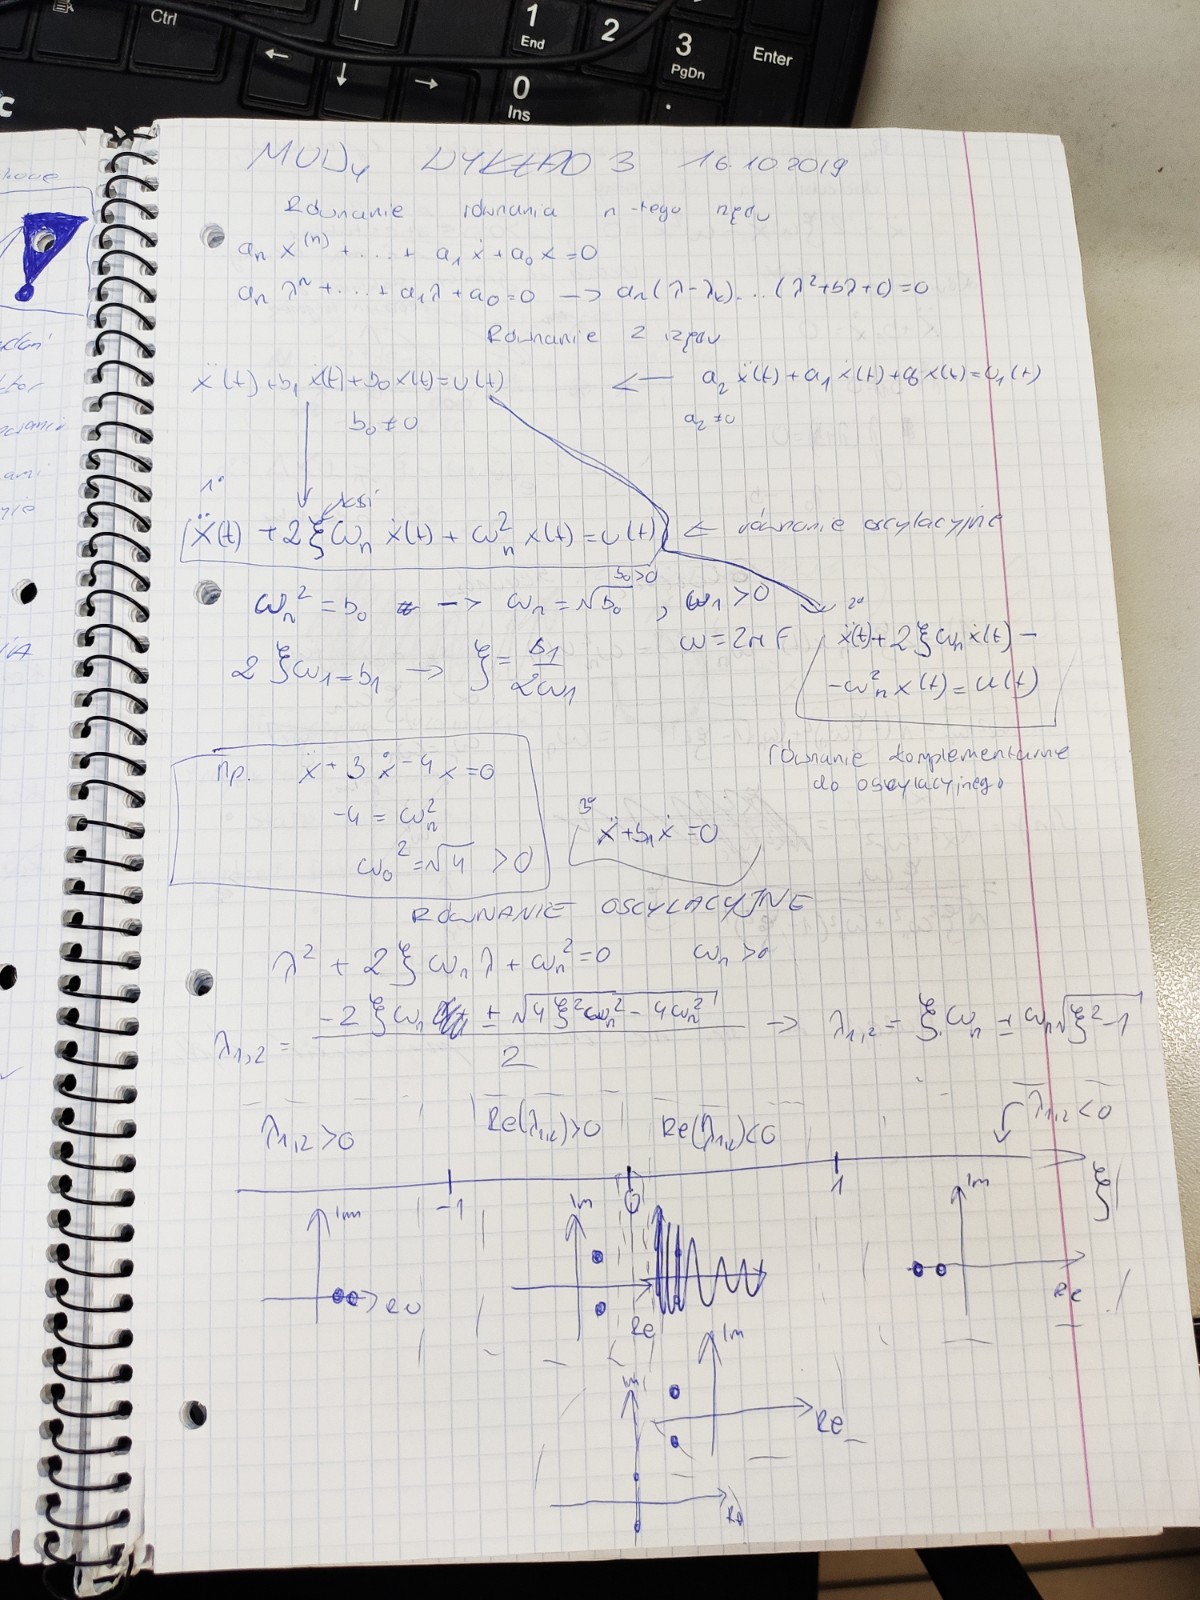 Ctrl
1
End
2
3
PgDn
Enter
←
↓
→
0
Ins
.
MUDy WYKŁAD 3 16.10.2019
Równanie równania n-tego rzędu
aₙ x⁽ⁿ⁾ + ... + a₁ ẋ + a₀ x = 0
aₙ λⁿ + ... + a₁λ + a₀ = 0 → aₙ(λ-λₖ)...(λ²+bλ+c) = 0
Równanie 2 rzędu
ẍ(t) + b₁ ẋ(t) + b₀ x(t) = u(t) ← a₂ ẍ(t) + a₁ ẋ(t) + a₀ x(t) = u₁(t)
b₀ ≠ 0 a₂ ≠ 0
1°
ksi
ẍ(t) + 2ξωₙ ẋ(t) + ωₙ² x(t) = u(t) ← równanie oscylacyjne
ωₙ² = b₀ → ωₙ = √b₀ , ω₁ > 0
b₀>0
2°
ω = 2πF
2ξω₁ = b₁ → ξ = b₁/2ω₁
ẍ(t) + 2ξωₙ ẋ(t) -
- ωₙ² x(t) = u(t)
równanie komplementarne
do oscylacyjnego
np. ẍ + 3ẋ - 4x = 0
-4 = ωₙ²
ω₀² = √4 > 0
3°
ẍ + b₁ẋ = 0
RÓWNANIE OSCYLACYJNE
λ² + 2ξωₙλ + ωₙ² = 0 ωₙ > 0
λ₁,₂ = (-2ξωₙ ± √(4ξ²ωₙ² - 4ωₙ²)) / 2 → λ₁,₂ = ξ.ωₙ ± ωₙ√(ξ²-1)
λ₁,₂ > 0 Re(λ₁,₂) > 0 Re(λ₁,₂) < 0 λ₁,₂ < 0
-1 0 1 ξ
Im Im Im
Re Re Re
Im
Re
Im
Re